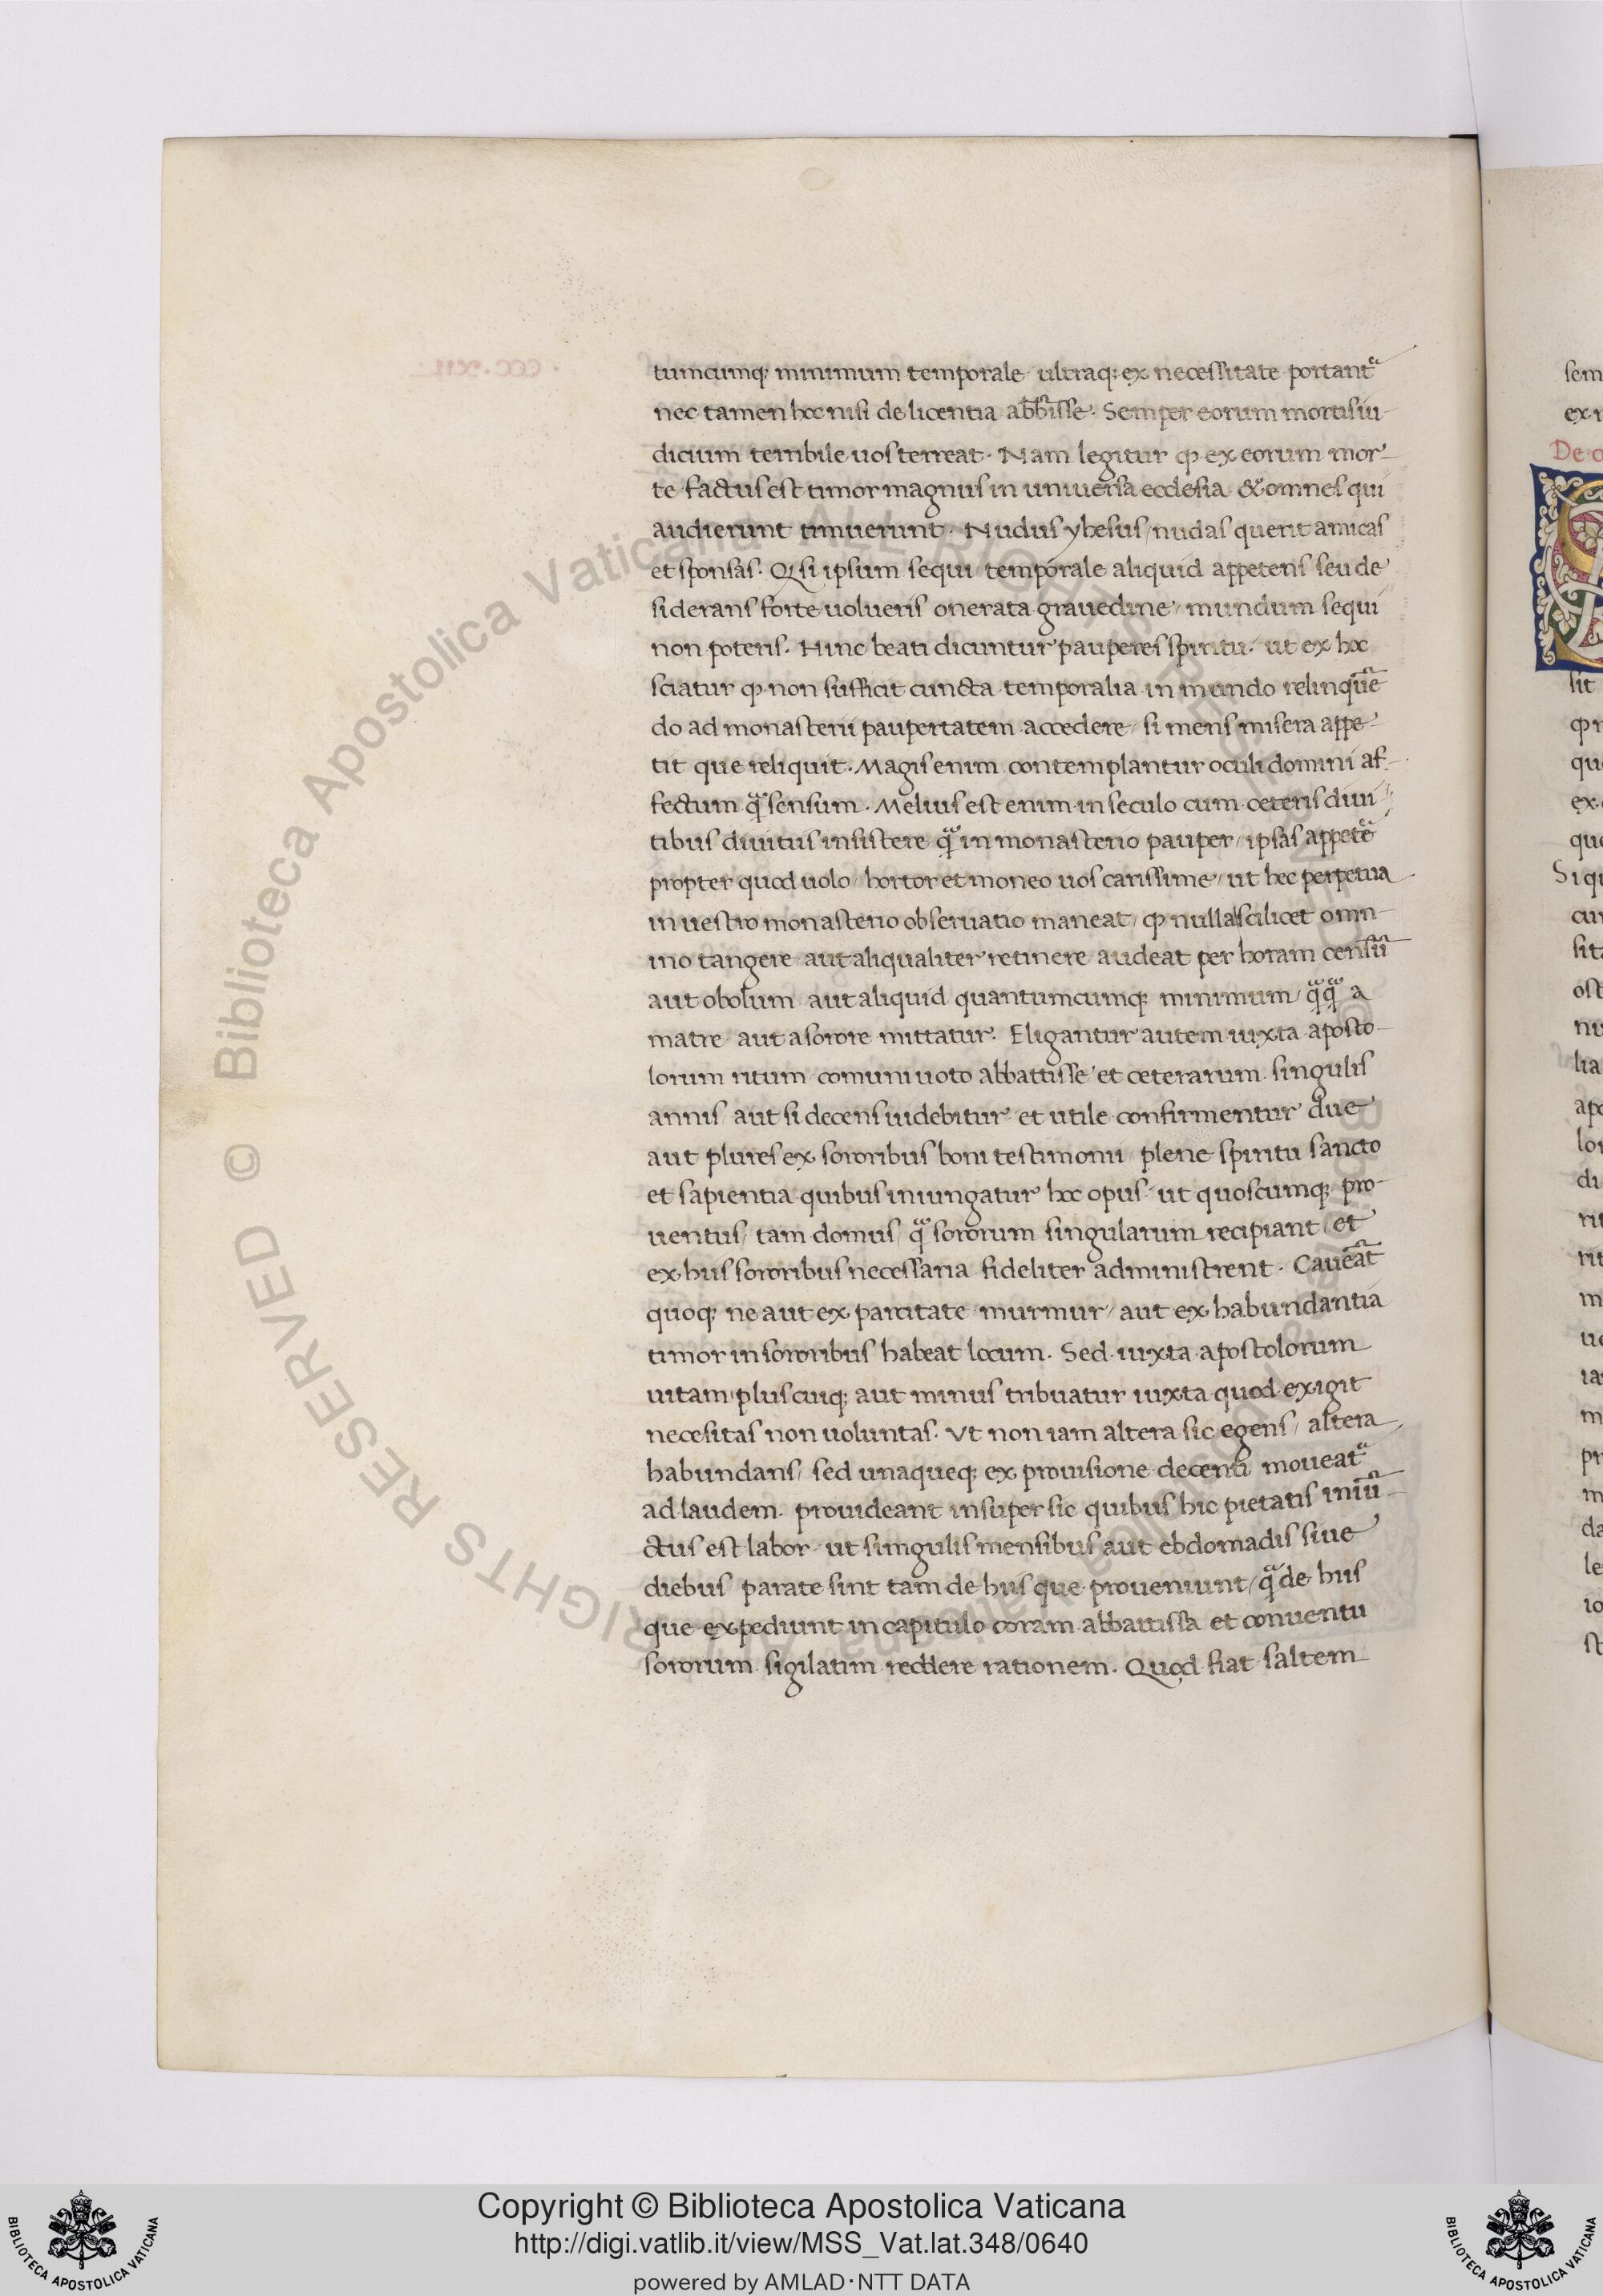 tumcumq; minimum temporale ultraq; ex necessitate portant᷑
nec tamen hoc nisi de licentia abb̄isse. Semper eorum mortis iu
dicium terribile uos terreat. Nam legitur ꝙ ex eorum mor
te factus est timor magnus in uniuersa ecclesia & omnes qui
audierunt timuerunt. Nudus yhesus / nudas querit amicas
et sponsas. Q si ipsum sequi temporale aliquid appetens seu de
siderans forte uolueris onerata grauedine / mundum sequi
non poteris. Hinc beati dicuntur pauperes spiritu. ut ex hoc
sciatur ꝙ non sufficit cuncta temporalia in mundo relinquē
do ad monasterii paupertatem accedere / si mens misera appe
tit que reliquit. Magis enim contemplantur oculi domini af
fectum qᷓ sensum. Melius est enim in seculo cum ceteris diui
tibus diuitiis insistere qᷓ in monasterio pauper / ipsas appetē
propter quod uolo / hortor et moneo uos carissime / ut hec perpetua
in uestro monasterio obseruatio maneat / ꝙ nulla scilicet omn
ino tangere aut aliqualiter retinere audeat per horam censū
aut obolum aut aliquid quantumcumq; minimum / qᷓqᷓ a
matre aut a sorore mittatur. Eligantur autem iuxta aposto
lorum ritum comuni uoto abbattisse et ceterarum singulis
annis aut si decens uidebitur et utile confirmentur due
aut plures ex sororibus boni testimonii plene spiritu sancto
et sapientia quibus iniungatur hoc opus ut quoscumq; pro
uentus / tam domus / qᷓ sororum singularum recipiant / et
ex hiis sororibus necessaria fideliter administrent. Caueāt
quoq; ne aut ex parcitate murmur / aut ex habundantia
timor in sororibus habeat locum. Sed iuxta apostolorum
uitam plus cuiq; aut minus tribuatur iuxta quod exigit
necesitas non uoluntas. Vt non iam altera sic egens / altera
habundans / sed unaqueq; ex prouisione decenti moueat᷑
ad laudem. prouideant insuper sic quibus hic pietatis iniū
ctus est labor ut simgulis mensibus aut ebdomadis siue
diebus parate sint tam de hiis que proueniunt / qᷓ de hiis
que expediunt in capitulo coram abbattissa et conuentu
sororum sigilatim reddere rationem. Quod fiat saltem
De o
sem
sit
Si qu
© Biblioteca Apostolica Vaticana ALL RIGHTS RESERVED
Copyright © Biblioteca Apostolica Vaticana
http://digi.vatlib.it/view/MSS_Vat.lat.348/0640
powered by AMLAD·NTT DATA
BIBLIOTECA APOSTOLICA VATICANA
BIBLIOTECA APOSTOLICA VATICANA